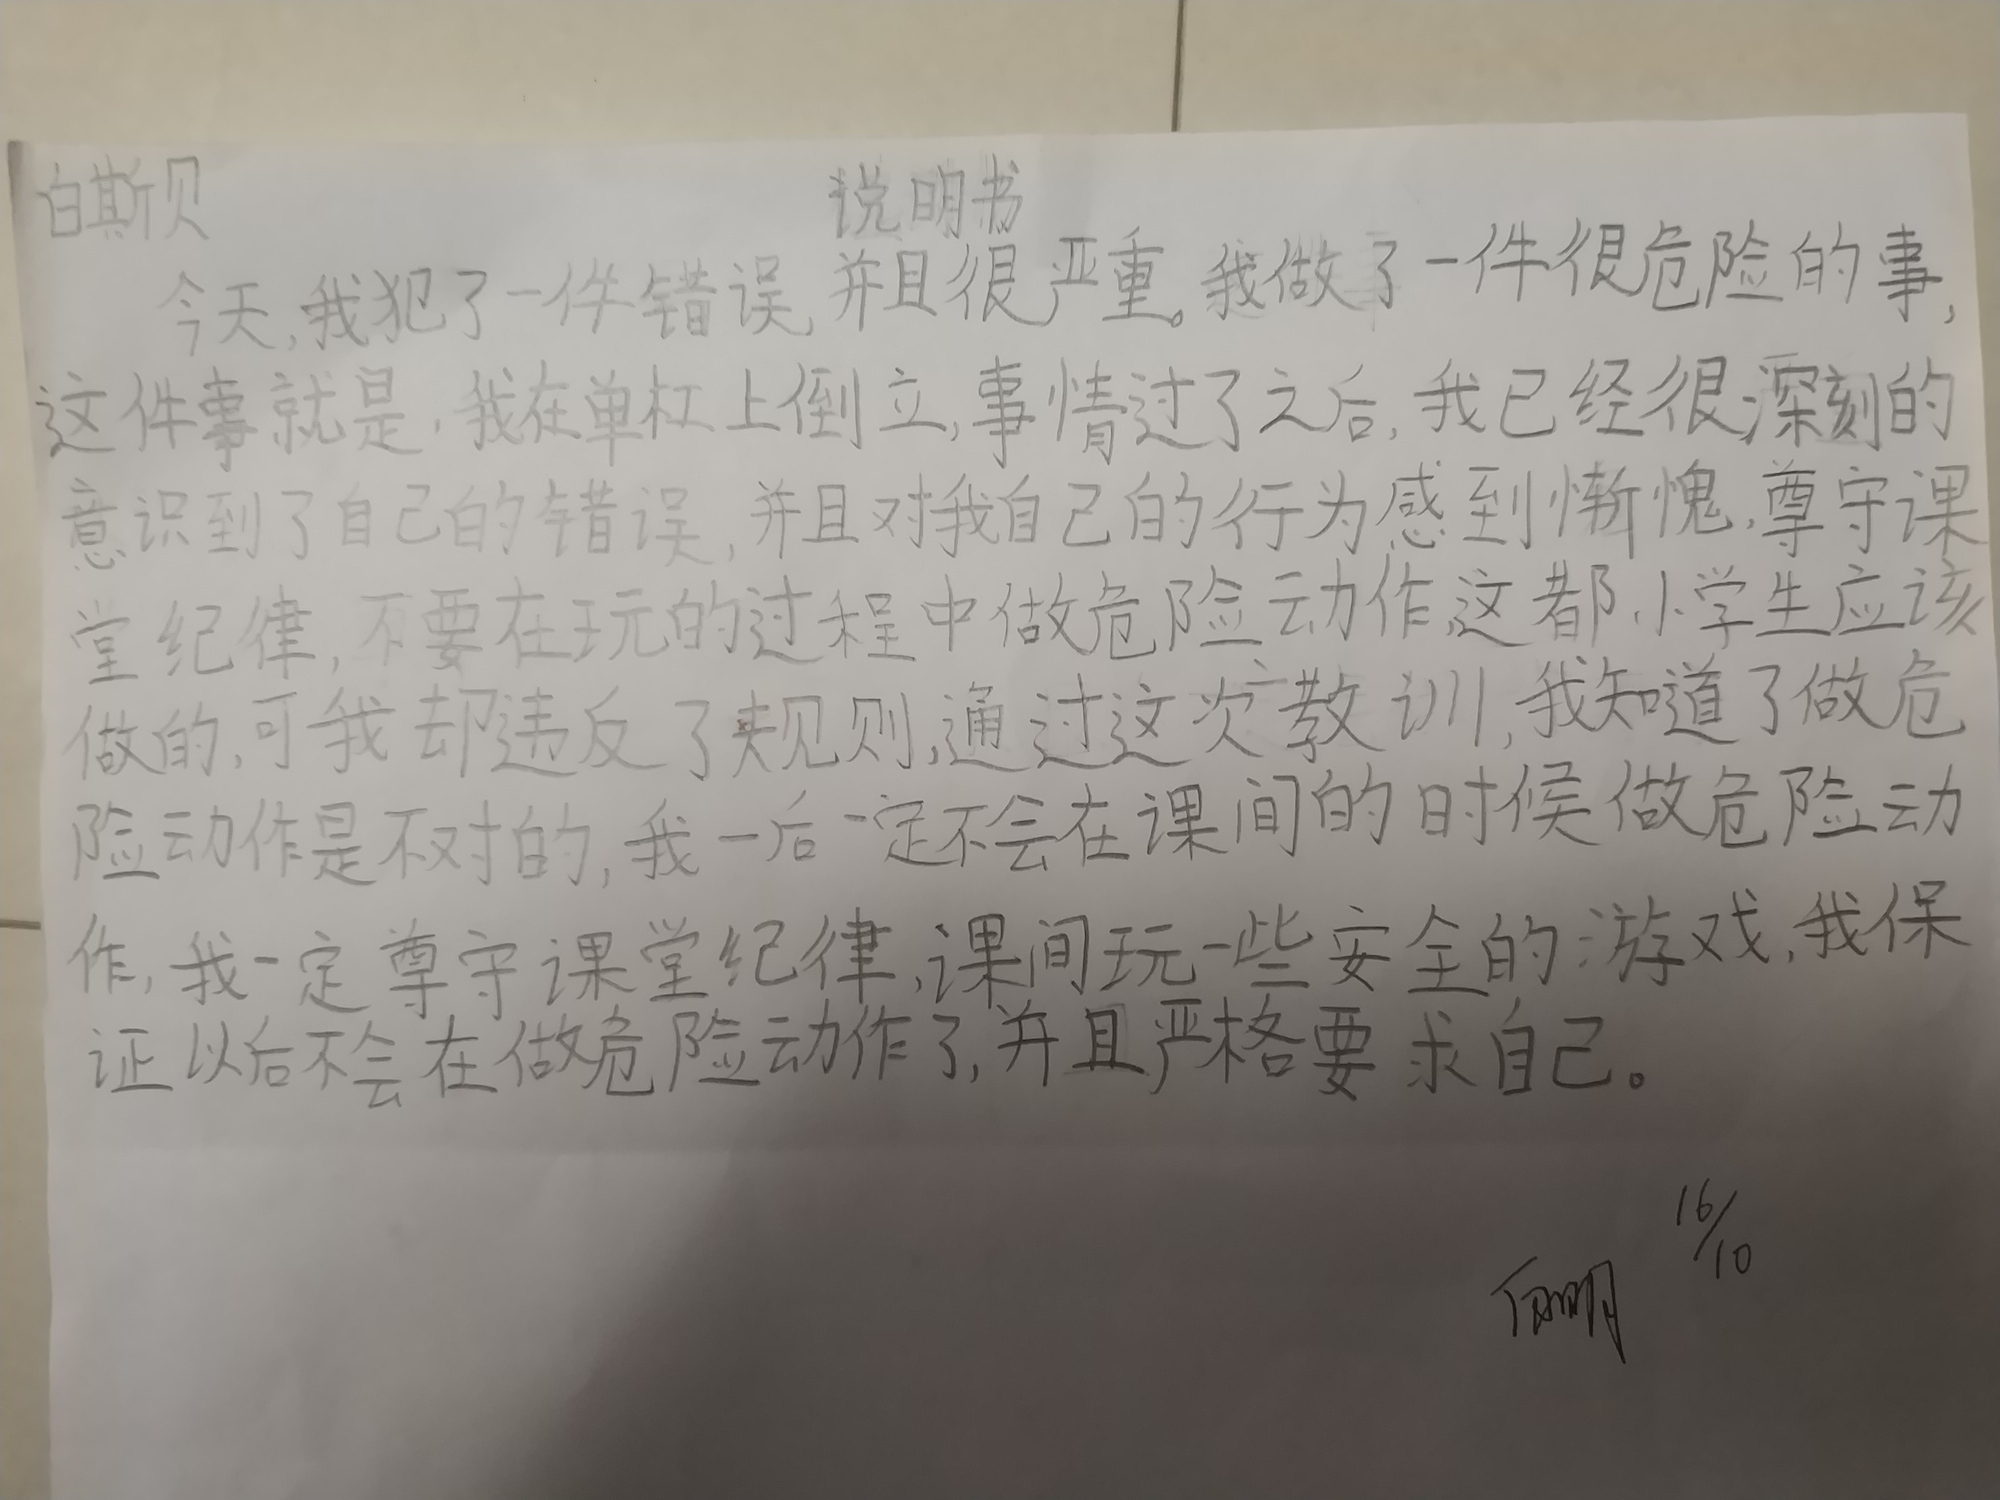 白斯贝 说明书
今天,我犯了一件错误,并且很严重。我做了一件很危险的事,
这件事就是,我在单杠上倒立,事情过了之后,我已经很深刻的
意识到了自己的错误,并且对我自己的行为感到惭愧,尊守课
堂纪律,不要在玩的过程中做危险动作,这都小学生应该
做的,可我却违反了规则,通过这次教训,我知道了做危
险动作是不对的,我一后一定不会在课间的时候做危险动
作,我一定尊守课堂纪律,课间玩一些安全的游戏,我保
证以后不会在做危险动作了,并且严格要求自己。
16/10